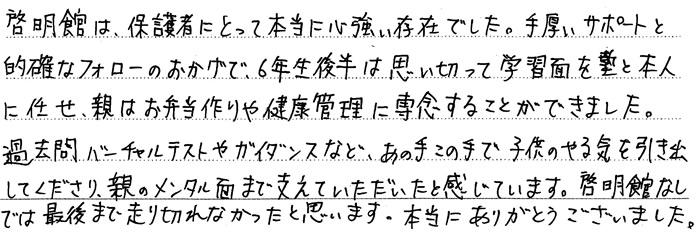 啓明館は、保護者にとって本当に心強い存在でした。手厚いサポートと
的確なフォローのおかげで、6年生後半は思い切って学習面を塾と本人
に任せ、親はお弁当作りや健康管理に専念することができました。
過去問バーチャルテストやガイダンスなど、あの手この手で子供のやる気を引き出
してくださり、親のメンタル面まで支えていただいたと感じています。啓明館なし
では最後まで走り切れなかったと思います。本当にありがとうございました。